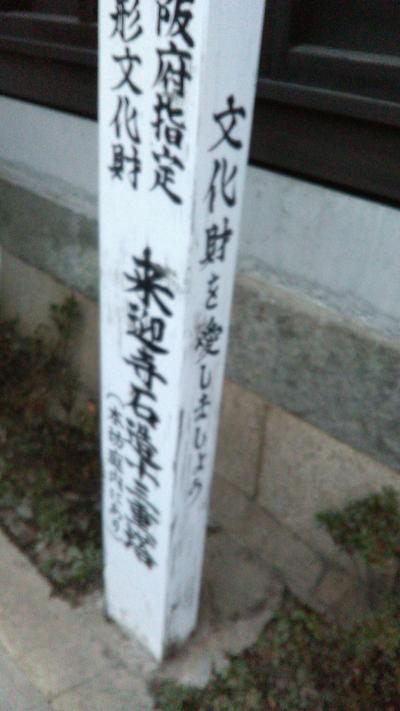 阪府指定
形文化財
来迎寺石造十三重塔
(本坊庭内にあり)
文化財を愛しましょう